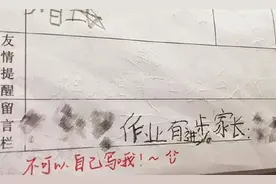 友情提醒留言栏
作业有进步。家长：
不可以自己写哦！~